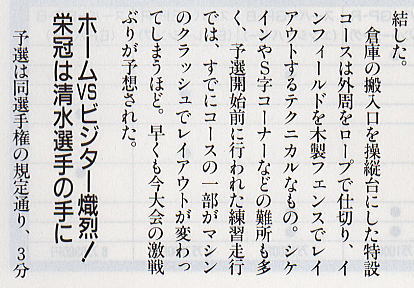 結した。
　倉庫の搬入口を操縦台にした特設
コースは外周をロープで仕切り、イ
ンフィールドを木製フェンスでレイ
アウトするテクニカルなもの。シケ
インやS字コーナーなどの難所も多
く、予選開始前に行われた練習走行
では、すでにコースの一部がマシン
のクラッシュでレイアウトが変わっ
てしまうほど。早くも今大会の激戦
ぶりが予想された。
ホームVSビジター熾烈！
栄冠は清水選手の手に
　予選は同選手権の規定通り、3分